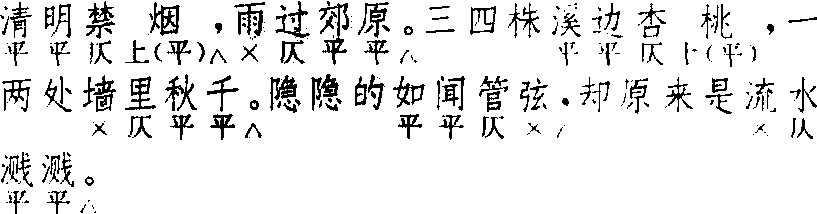 清明禁烟,雨过郊原。三四株溪边杏桃,一
平平仄上(平)△×仄平平△ 平平仄上(平)
两处墙里秋千。隐隐的如闻管弦,却原来是流水
×仄平平△ 平平仄×△ ×仄
溅溅。
平平△